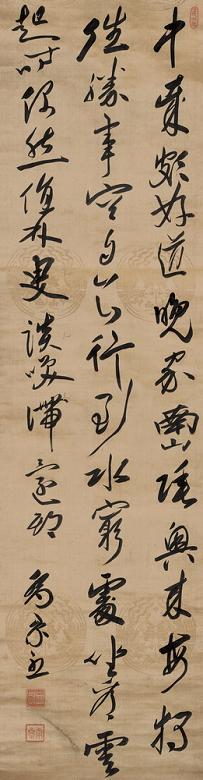 中歲頗好道晚家南山陲興來每獨
往勝事空自知行到水窮處坐看雲
起時偶然值林叟談笑滯還期